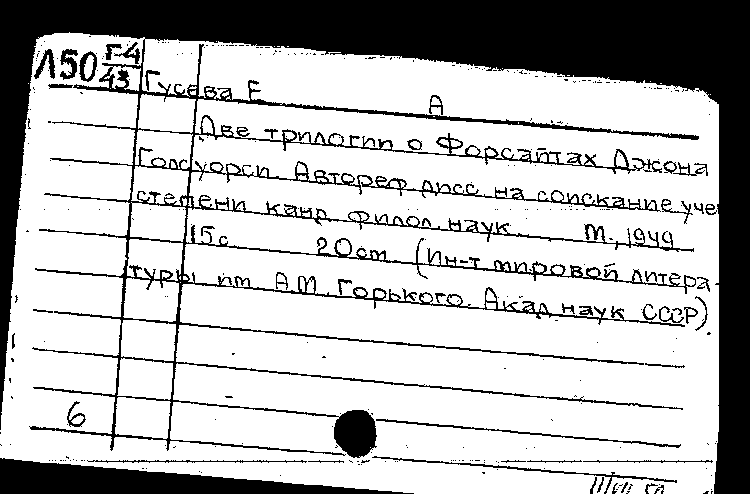 Л50 Г-4
43
Гусева Е А
Две трилогии о Форсайтах Джона
Голсуорси. Автореф дисс на соискание уче
степени канд филол наук. М., 1949
15с 20см (Ин-т мировой литера-
туры им А.М. Горького. Акад наук СССР).
6